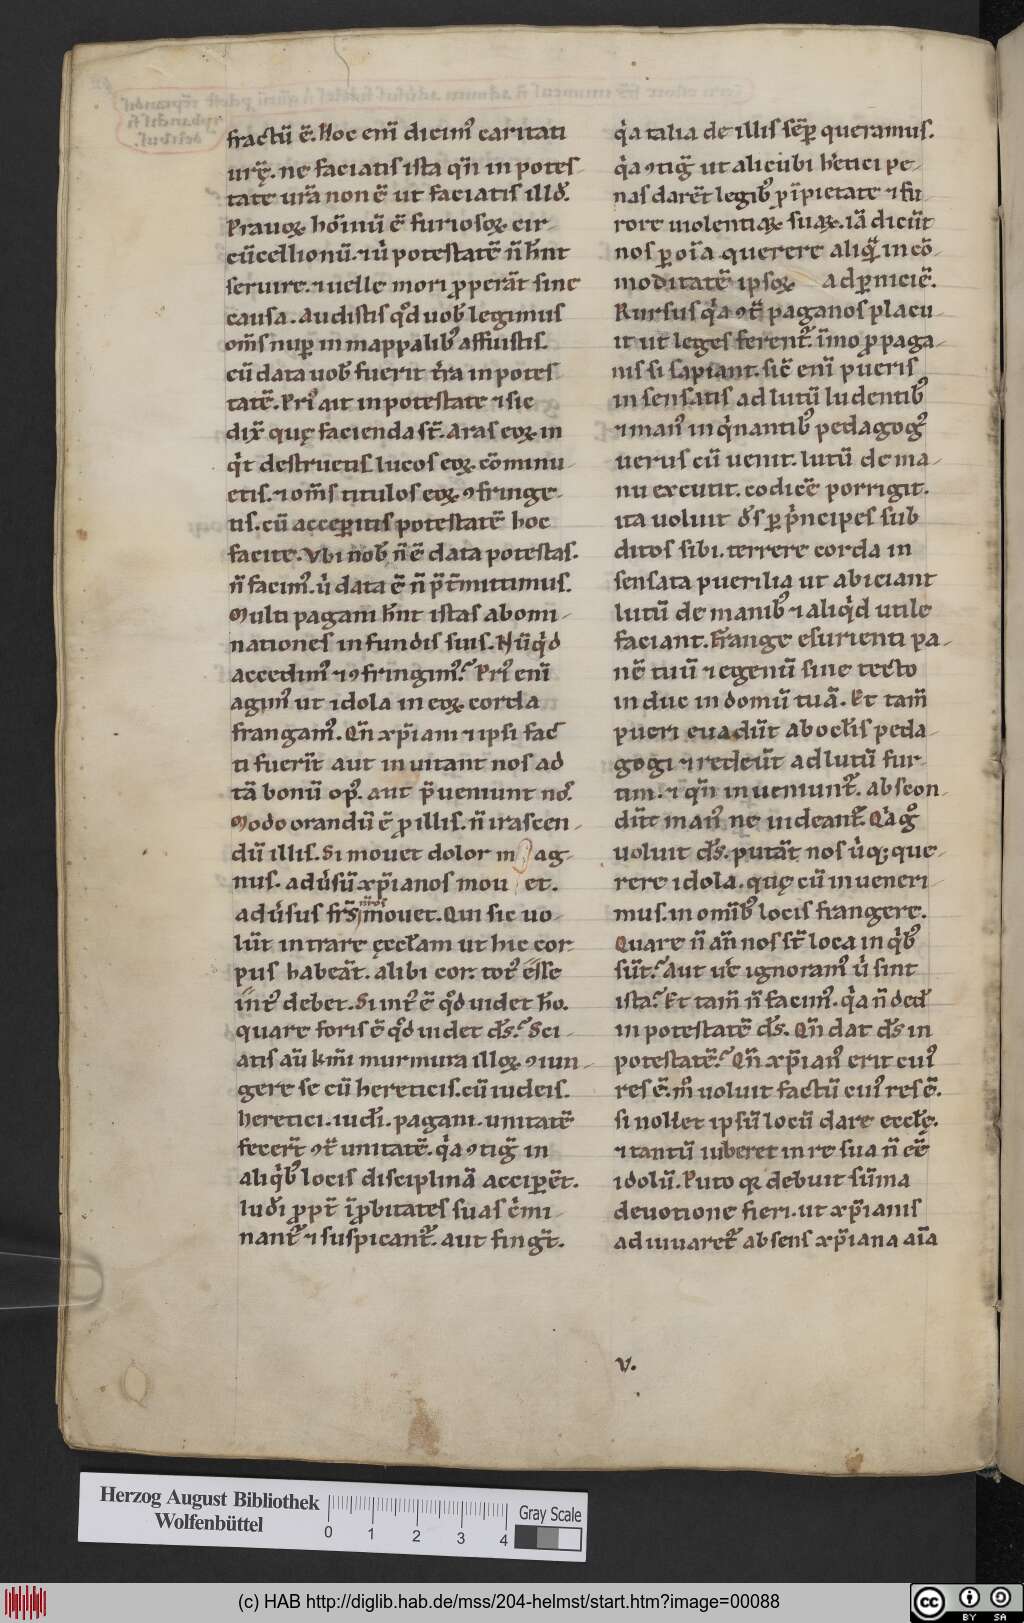 fractū ē. Hoc enī dicimꝰ caritati
urę̄. ne faciatis ista qn̄ in potes-
tate urā non ē ut faciatis illđ.
Prauoꝝ hoīnū ē furiosoꝝ cir-
cūcellionū. ⁊ uͥ potestatē n̄ hn̄t
seruire. ⁊ uelle mori ꝓperāt sine
causa. Audistis qd̓ uob̄ legimus
om̄s nuꝑ in mappalibꝰ affuistis.
cū data uob̄ fuerit t̄ra in potes
tatē. Priꝰ ait in potestate ⁊ sic
dix̄ quę facienda st̄. Aras eoꝝ in
qͥt destruetis. lucos eoꝝ cōminu-
etis. ⁊ om̄s titulos eoꝝ ꝯfringe-
tis. cū acceꝑitis potestatē hoc
facite. Vbi nob̄ n̄ ē data potestas.
n̄ facimꝰ. uͥ data ē n̄ p̄t̄mittimus.
Multi pagani hn̄t istas abomi-
nationes in fundis suis. Nūqͥd
accedimꝰ ⁊ ꝯfringimꝰ? Priꝰ enī
agimꝰ ut idola in eoꝝ corda
frangamꝰ. Qn̄ xp̄iani ⁊ ipsi fac̄
ti fuerīt aut inuitant nos ad
tā bonū opꝰ. aut p̄ueniunt noꝰ.
Modo orandū ē ꝓ illis. n̄ irascen-
dū illis. Si mouet dolor m ag-
nus. adūsū xp̄ianos mou et.
adūsus frs̄ nr̄os mouet. Qui sic uo-
lūt intrare ęccłam ut hic cor
pus habeāt. alibi cor. totꝰ esse
intꝰ debet. Si intꝰ ē qd̓ uidet ho.
quare foris ē qd̓ uidet ds̄? Sci-
atis aū kmi murmura illoꝝ ꝯiun-
gere se cū hereticis. cū iudeis.
heretici. iudi. pagani. unitatē
fecert̄ ꝯt̄ unitatē. qͥa ꝯtiḡ in
aliqͥbꝰ locis disciplinā acceꝑēt.
ludi ꝓpt̄ īꝓbitates suas c̄mi-
nantᷣ ⁊ suspicantᷣ. aut fingt̄.
qͥa talia de illis sēꝑ queramus.
qͥa ꝯtiḡ ut alicubi hr̄tici pe-
nas darēt legibꝰ ꝓ īpietate ⁊ fu-
rore uiolentiaꝝ suaꝝ. iā dicūt
nos ꝑ oīa querere aliqͣ in cō-
moditatē ipsoꝝ ad ꝑniciē.
Rursus qͥa ꝯt̄ paganos placu-
it ut leges ferentᷣ. īmo ꝓ paga-
nis si sapiant. sic̄ enī pueris
insensatis ad lutū ludentibꝰ
⁊ manꝰ inqͥnantibꝰ pedagogꝰ
uerus cū uenit. lutū de ma-
nu excutit. codicē porrigit.
ita uoluit ds̄ ꝑ pͥncipes sub
ditos sibi. terrere corda in
sensata puerilia ut abiciant
lutū de manibꝰ ⁊ aliqͥd utile
faciant. Frange esurienti pa-
nē tuū ⁊ egenū sine tecto
induc in domū tuā. Et tam̄
pueri euadūt ab oclis peda-
gogi ⁊ redeūt ad lutū fur-
tim. ⁊ qn̄ inueniuntᷣ. abscon-
dūt manꝰ ne uideantᷣ. Qͥa gͦ
uoluit ds̄. putāt nos uͥqꝫ que-
rere idola. quę cū inueneri-
mus. in omībꝰ locis frangere.
Quare n̄ an̄ nos st̄ loca in qͥbꝰ
sūt? Aut uē ignoramꝰ uͥ sint
ista? Et tam̄ n̄ facimꝰ. qͥa n̄ ded̄
in potestatē ds̄. Qn̄ dat ds̄ in
potestatē? Qn̄ xp̄ianꝰ erit cuiꝰ
res ē. m̊ uoluit factū cuiꝰ res ē.
si nollet ipsū locū dare ecclę.
⁊ tantū iuberet in re sua n̄ cē
idolū. Puto qꝛ debuit sūma
deuotione fieri. ut xp̄ianis
adiuuaretᷣ absens xp̄iana aīa
v.
Herzog August Bibliothek
Wolfenbüttel
0 1 2 3 4
Gray Scale
(c) HAB http://diglib.hab.de/mss/204-helmst/start.htm?image=00088
cc BY SA